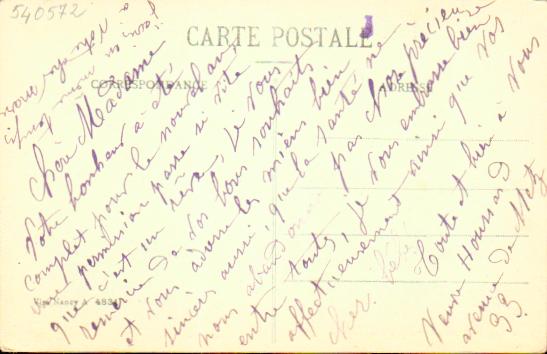 540572
CARTE POSTALE
CORRESPONDANCE
ADRESSE
Chère Madame
Votre bonheur a été
complet pour le nouvel an
une permission passe si vite
que c'est un rêve, je vous
remercie de vos bons souhaits
et vous adresse les miens bien
sincères aussi, que la santé ne
nous abandonne pas chose précieuse
entre toutes, je vous embrasse bien
affectueusement ainsi que vos
cher
Toute et bien à vous
Veuve Houssard
avenue de Metz
93
Imp. Nancy A 483